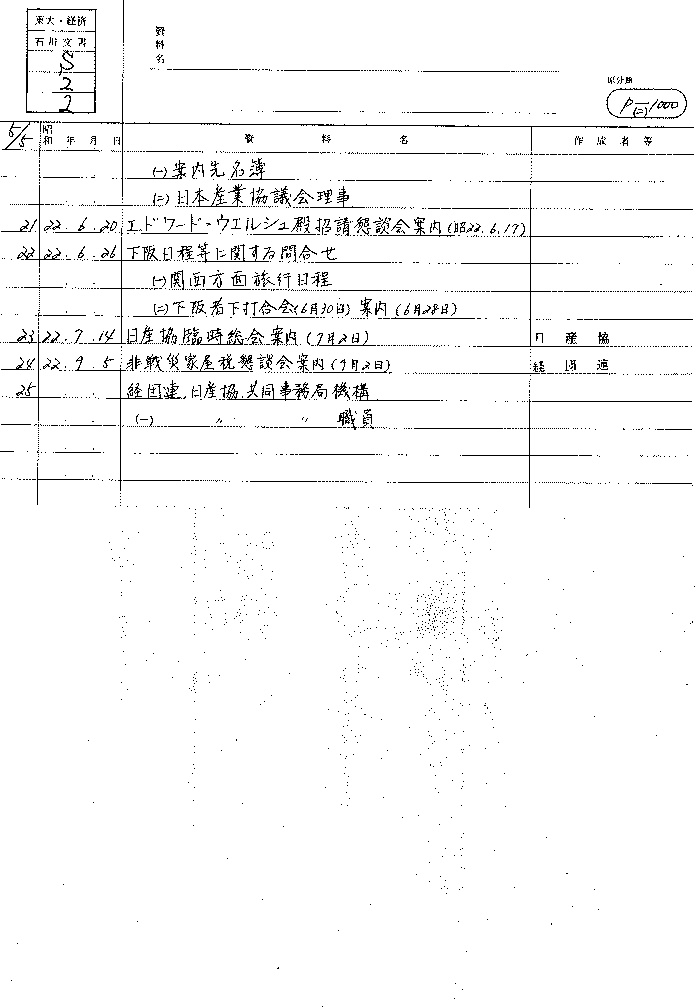 東大・経済
石川文書
S
2
2
資料名
原分類
P(二)1000
5/5
昭和 年 月 日 資料名 作成者等
(一)案内先名簿
(二)日本産業協議会理事
21 22.6.20 エドワード・ウエルシュ殿招請懇談会案内(昭22.6.17)
22 22.6.26 下阪日程等に関する問合せ
(一)関西方面旅行日程
(二)下阪者下打合会(6月30日)案内(6月28日)
23 22.7.14 日産協臨時総会案内(7月2日) 日産協
24 22.9.5 非戦災家屋税懇談会案内(9月2日) 経団連
25 経団連、日産協共同事務局機構
(一) 〃 〃 職員